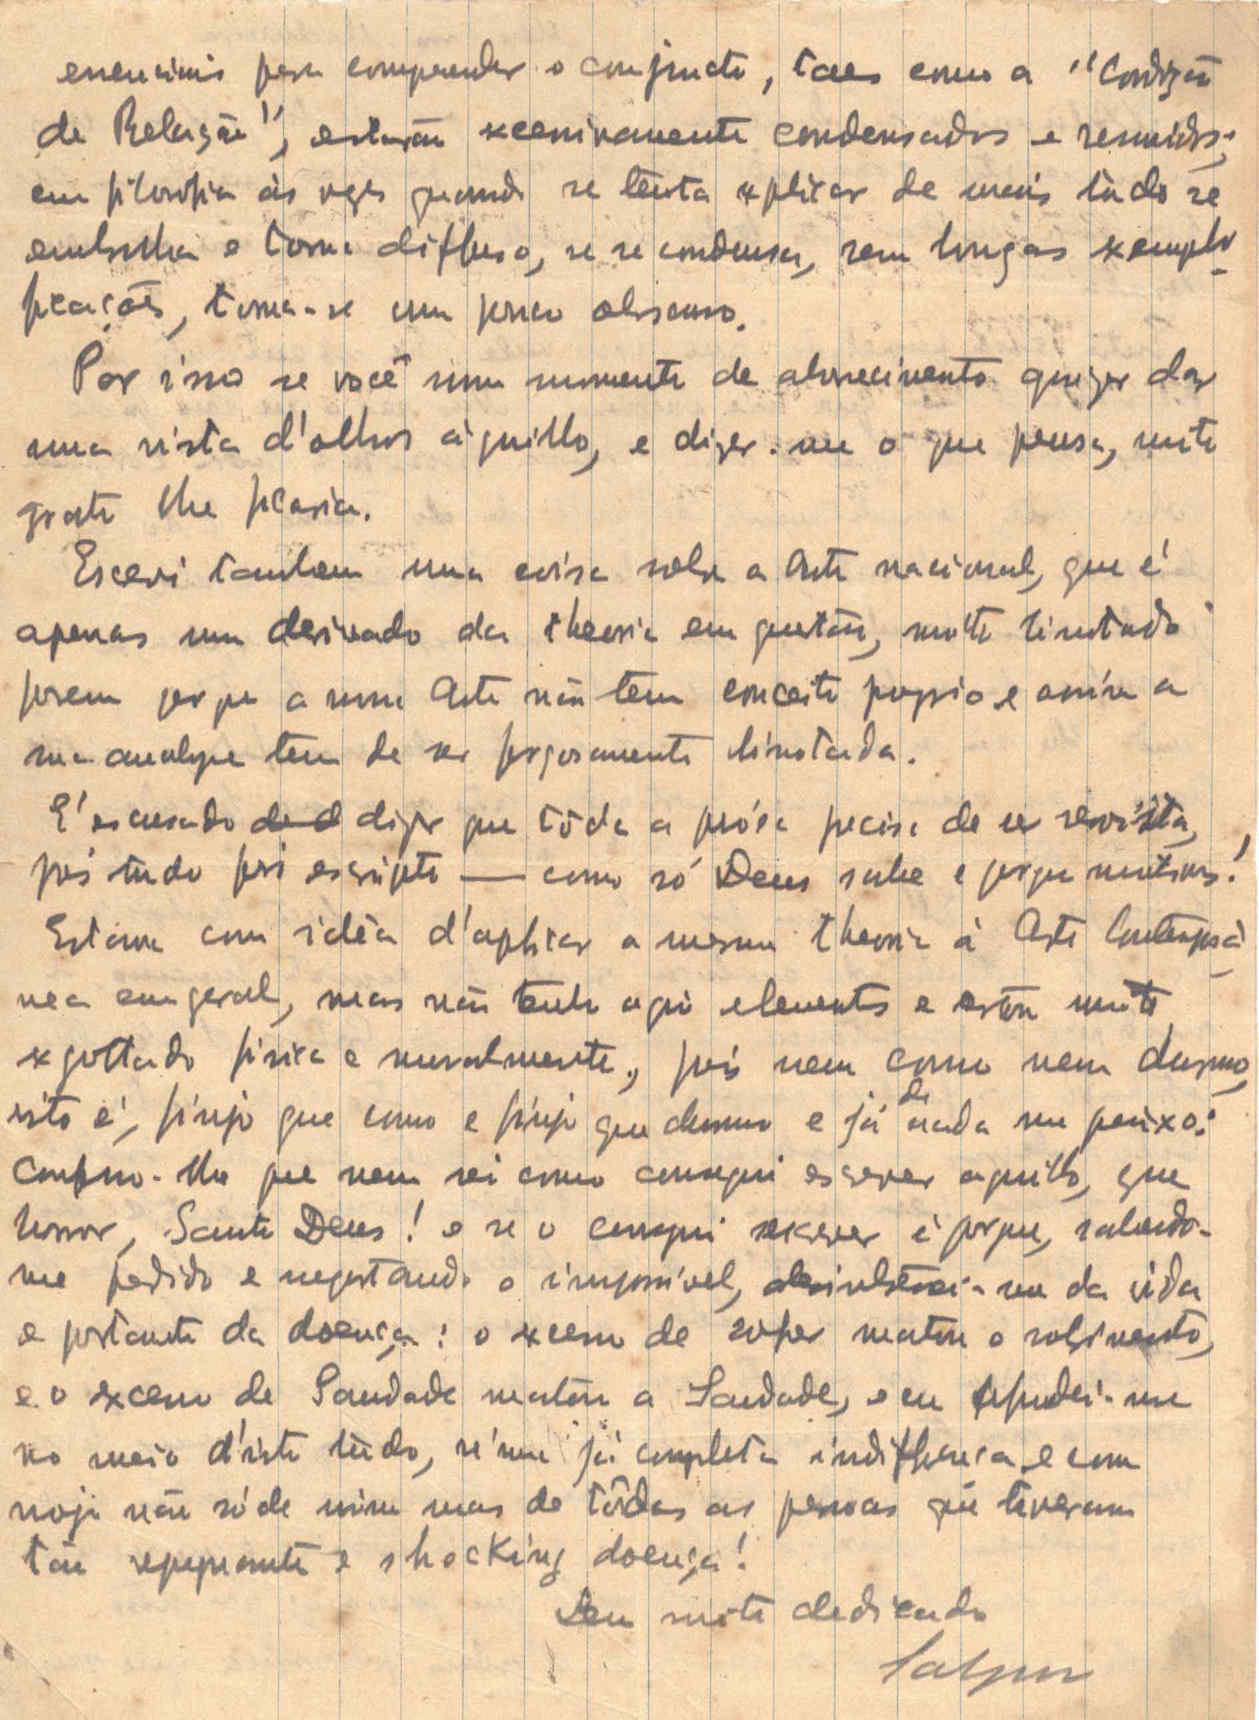 essenciais para comprender o conjuncto, taes como a "Condição
de Relação", estarão excessivamente condensados e resumidos;
em filosofia ás vezes quando se tenta explicar de mais tudo se
embrulha e torna diffuso, se se condensa, sem longas exempli-
ficações, torna-se um pouco obscuro.
Por isso se você num momento de aborrecimento quizer dar
uma vista d'olhos áquillo, e dizer-me o que pensa, muito
grato lhe ficaria.
Escrevi tambem uma coisa sobre a Arte nacional, que é
apenas um derivado da theoria em questão, muito limitado
porem porque a nossa Arte não tem conceito proprio e assim a
sua analyse tem de ser forçosamente limitada.
E' escusado dizer que tôda a prósa precisa de ser revista,
pois tudo foi escripto — como só Deus sabe e porque motivos!
Estava com idêa d'aplicar a mesma theoria á Arte Contemporâ-
nea em geral, mas não tenho aqui elementos e estou muito
exgottado fisica e moralmente, pois nem como nem durmo,
isto é, finjo que como e finjo que durmo e já de nada me queixo:
Confesso-lhe que nem sei como consegui escrever aquillo, que
horror, Santo Deus! e se o consegui escrever é porque, sabendo-
me perdido e negostando o impossivel, desinteressei-me da vida
e portanto da doença: o excesso de sofrer matou o sofrimento,
e o excesso de Saudade matou a Saudade, e eu afundei-me
no meio d'isto tudo, n'uma já completa indifferença e com
nojo não só de mim mas de tôdas as pessoas que tiveram
tão repugnante e shocking doença!
Seu muito dedicado